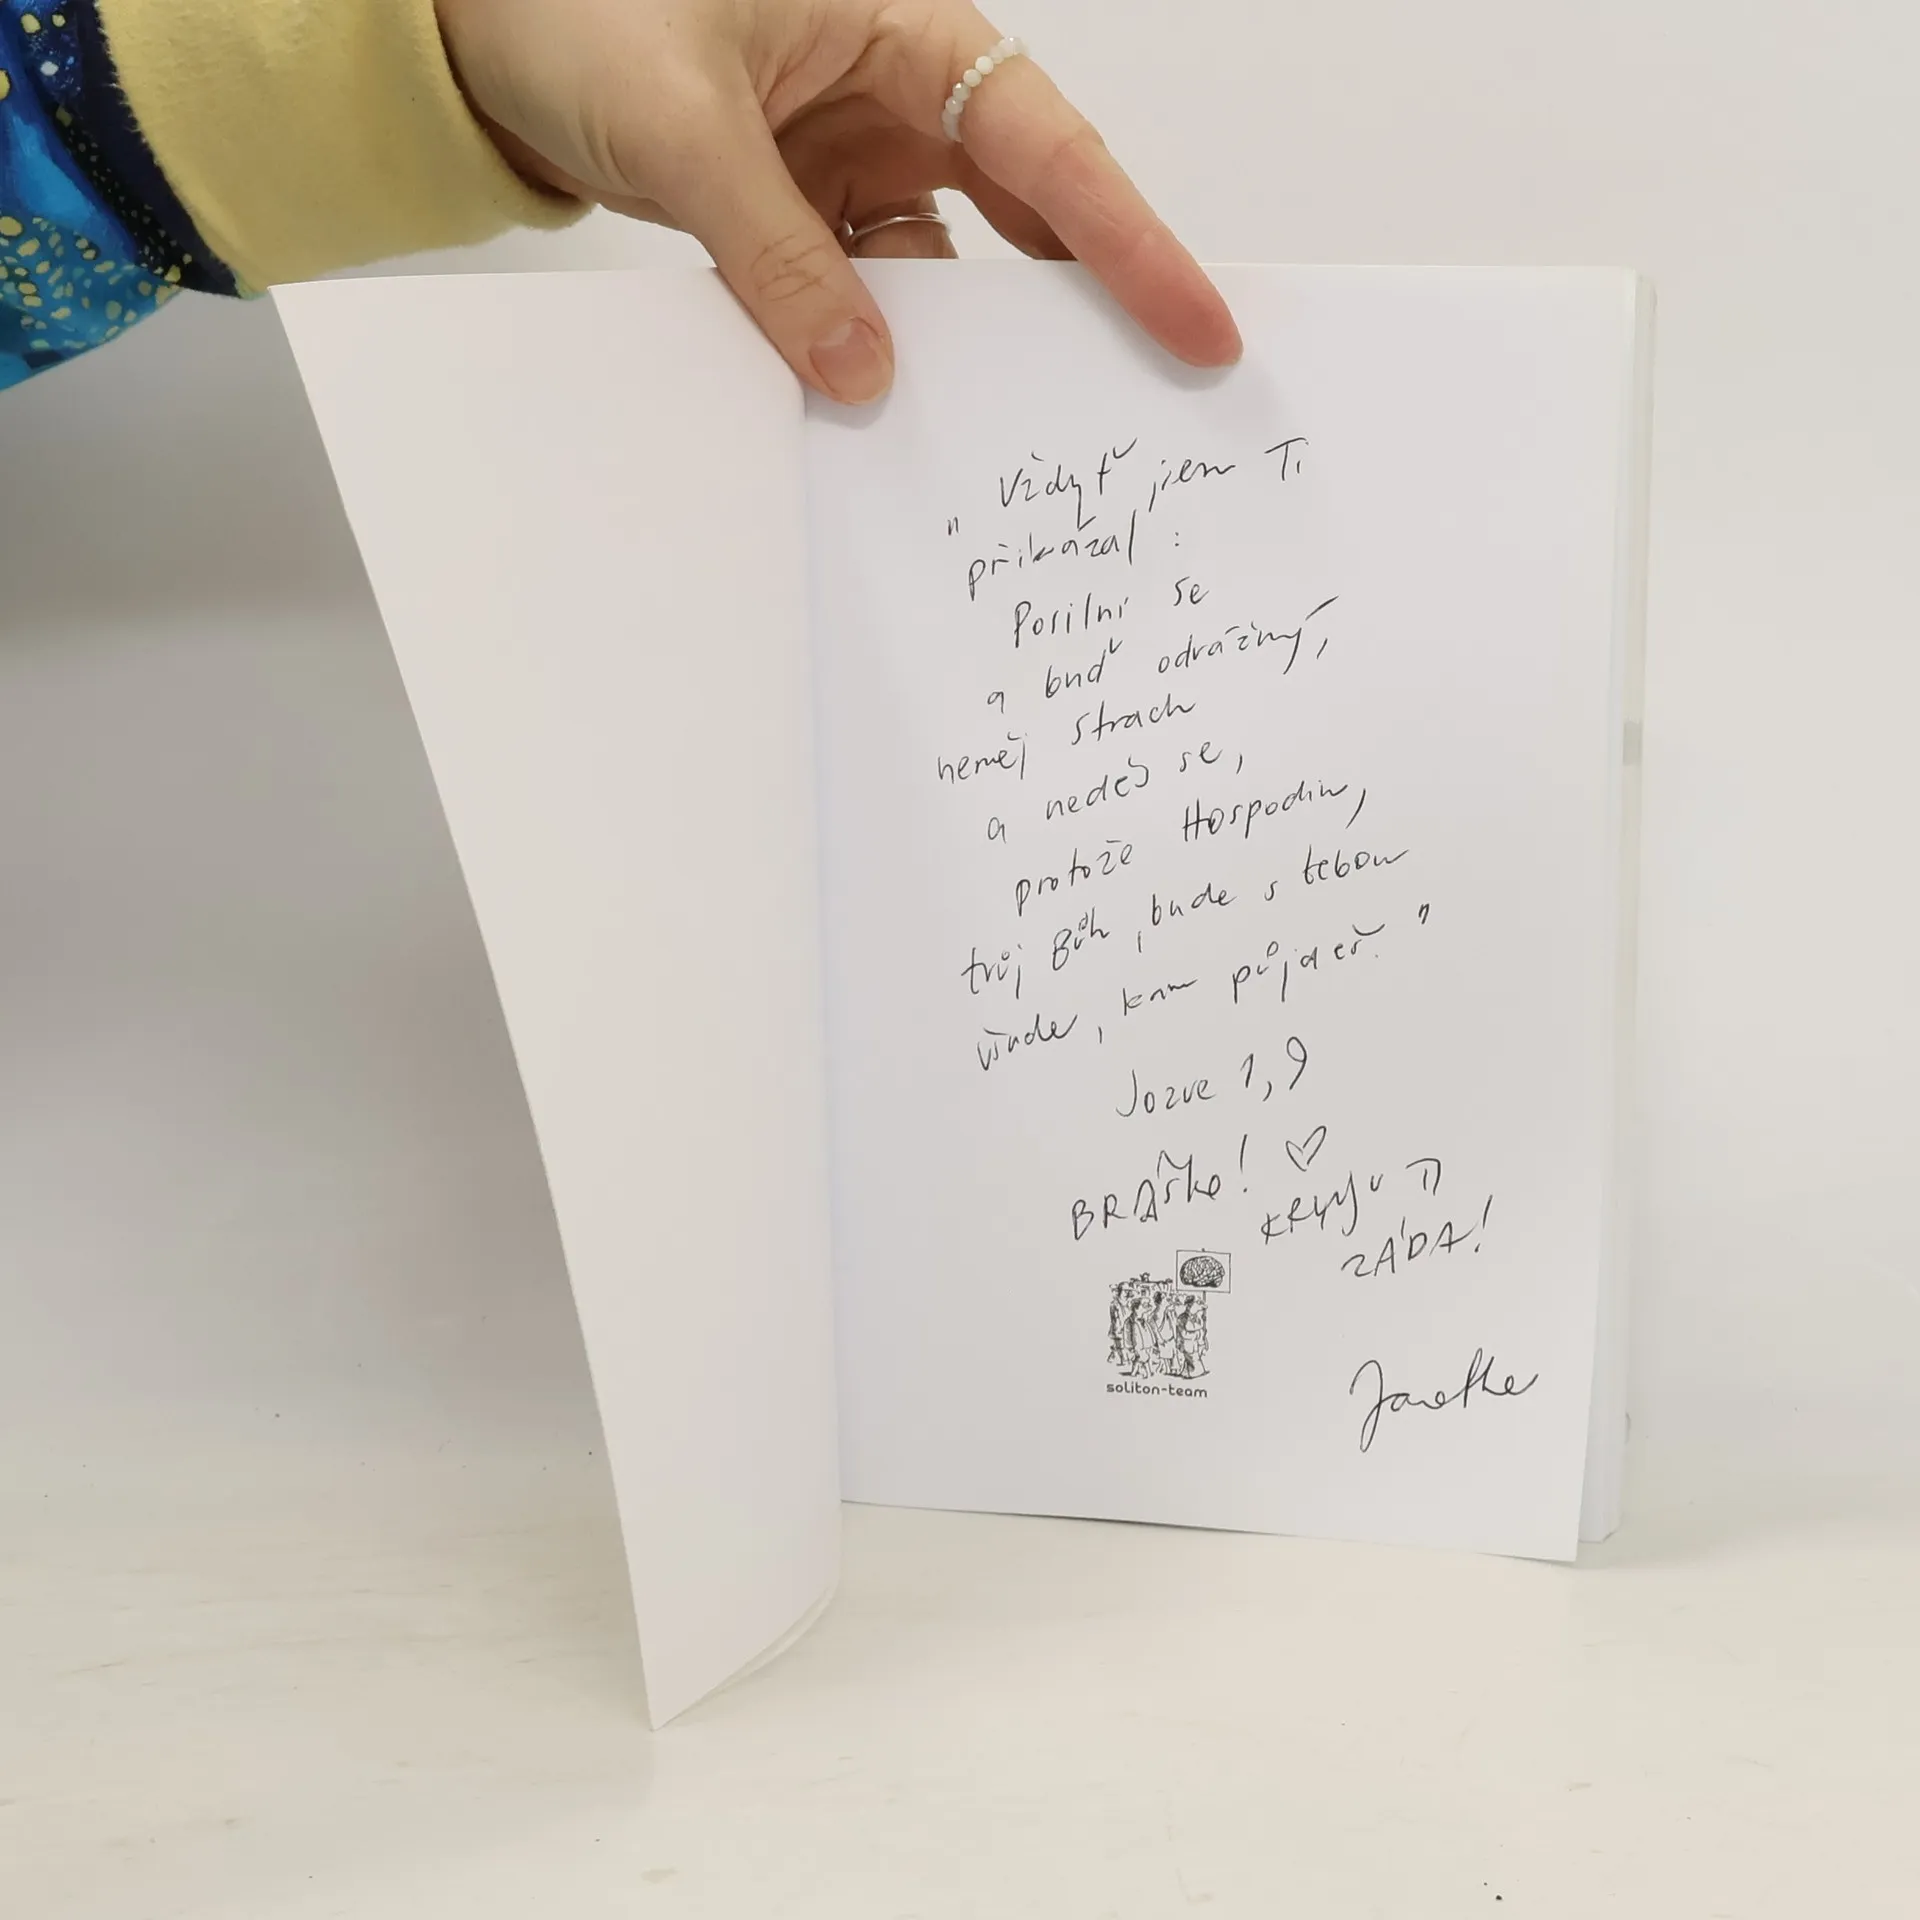 " Vždyť jsem Ti
přikázal :
Posilni se
a buď odvážný,
neměj strach
a neděs se,
protože Hospodin,
tvůj Bůh, bude s tebou
všude, kam půjdeš. "
Jozue 1,9
BRÁŠKO! ♡
KRYJU TI
ZÁDA!
soliton-team